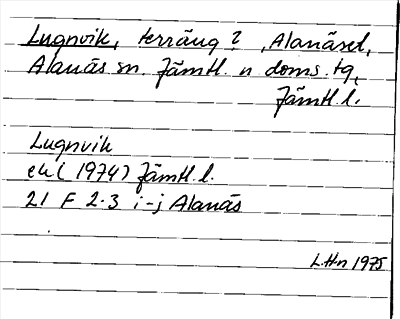 Lugnvik, terräng? , Alanäset,
Alanäs sn. Jämtl. n doms. tg,
Jämtl.l.
Lugnvik
ek (1974) Jämtl.l.
21 F 2-3 i-j Alanäs
L.H-n 1975